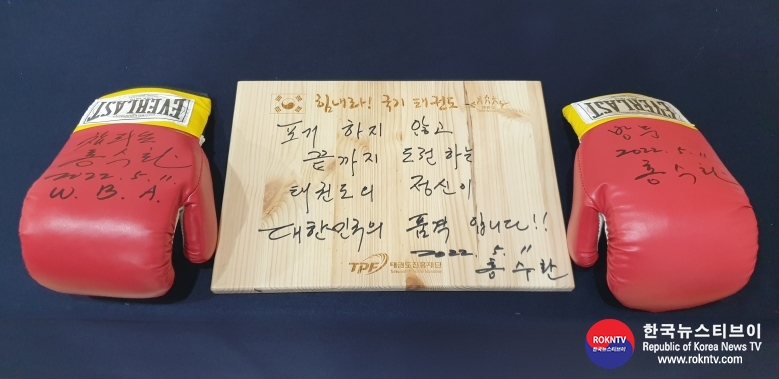 EVERLAST
챔피온
홍수환
2022. 5. 11
W.B.A.
힘내라! 국기 태권도
포기 하지 않고
끝까지 도전하는
태권도의 정신이
대한민국의 품격 입니다!!
2022. 5. 11
홍수환
TPF 태권도진흥재단
EVERLAST
2022. 5. 11
홍수환
ROKNTV
한국뉴스티브이
한국뉴스티브이
Republic of Korea News TV
www.rokntv.com